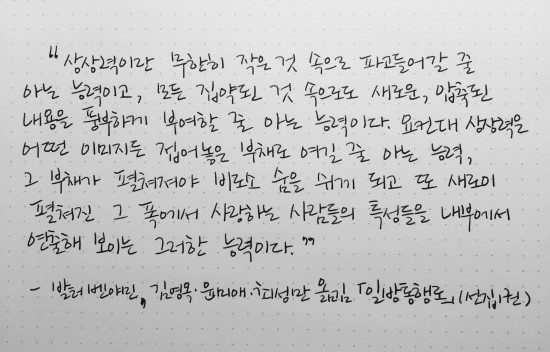 “상상력이란 무한히 작은 것 속으로 파고들어갈 줄
아는 능력이고, 모든 집약된 것 속으로도 새로운, 압축된
내용을 풍부하게 부여할 줄 아는 능력이다. 요컨대 상상력은
어떤 이미지든 접어놓은 부채로 여길 줄 아는 능력,
그 부채가 펼쳐져야 비로소 숨을 쉬게 되고 또 새로이
펼쳐진 그 폭에서 사랑하는 사람들의 특성들을 내부에서
연출해 보이는 그러한 능력이다.”
- 발터 벤야민, 김영옥·윤미애·최성만 옮김 「일방통행로」 (선집1권)